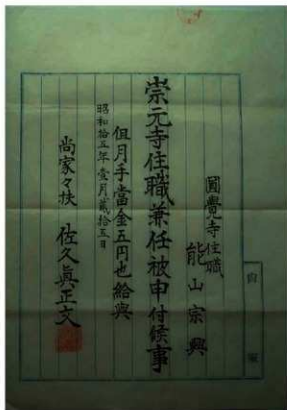 圓覺寺住職
能山宗興
崇元寺住職兼任被申付候事
但月手當金五円也給與
昭和拾五年壹月貳拾五日
尚家々扶 佐久真正文